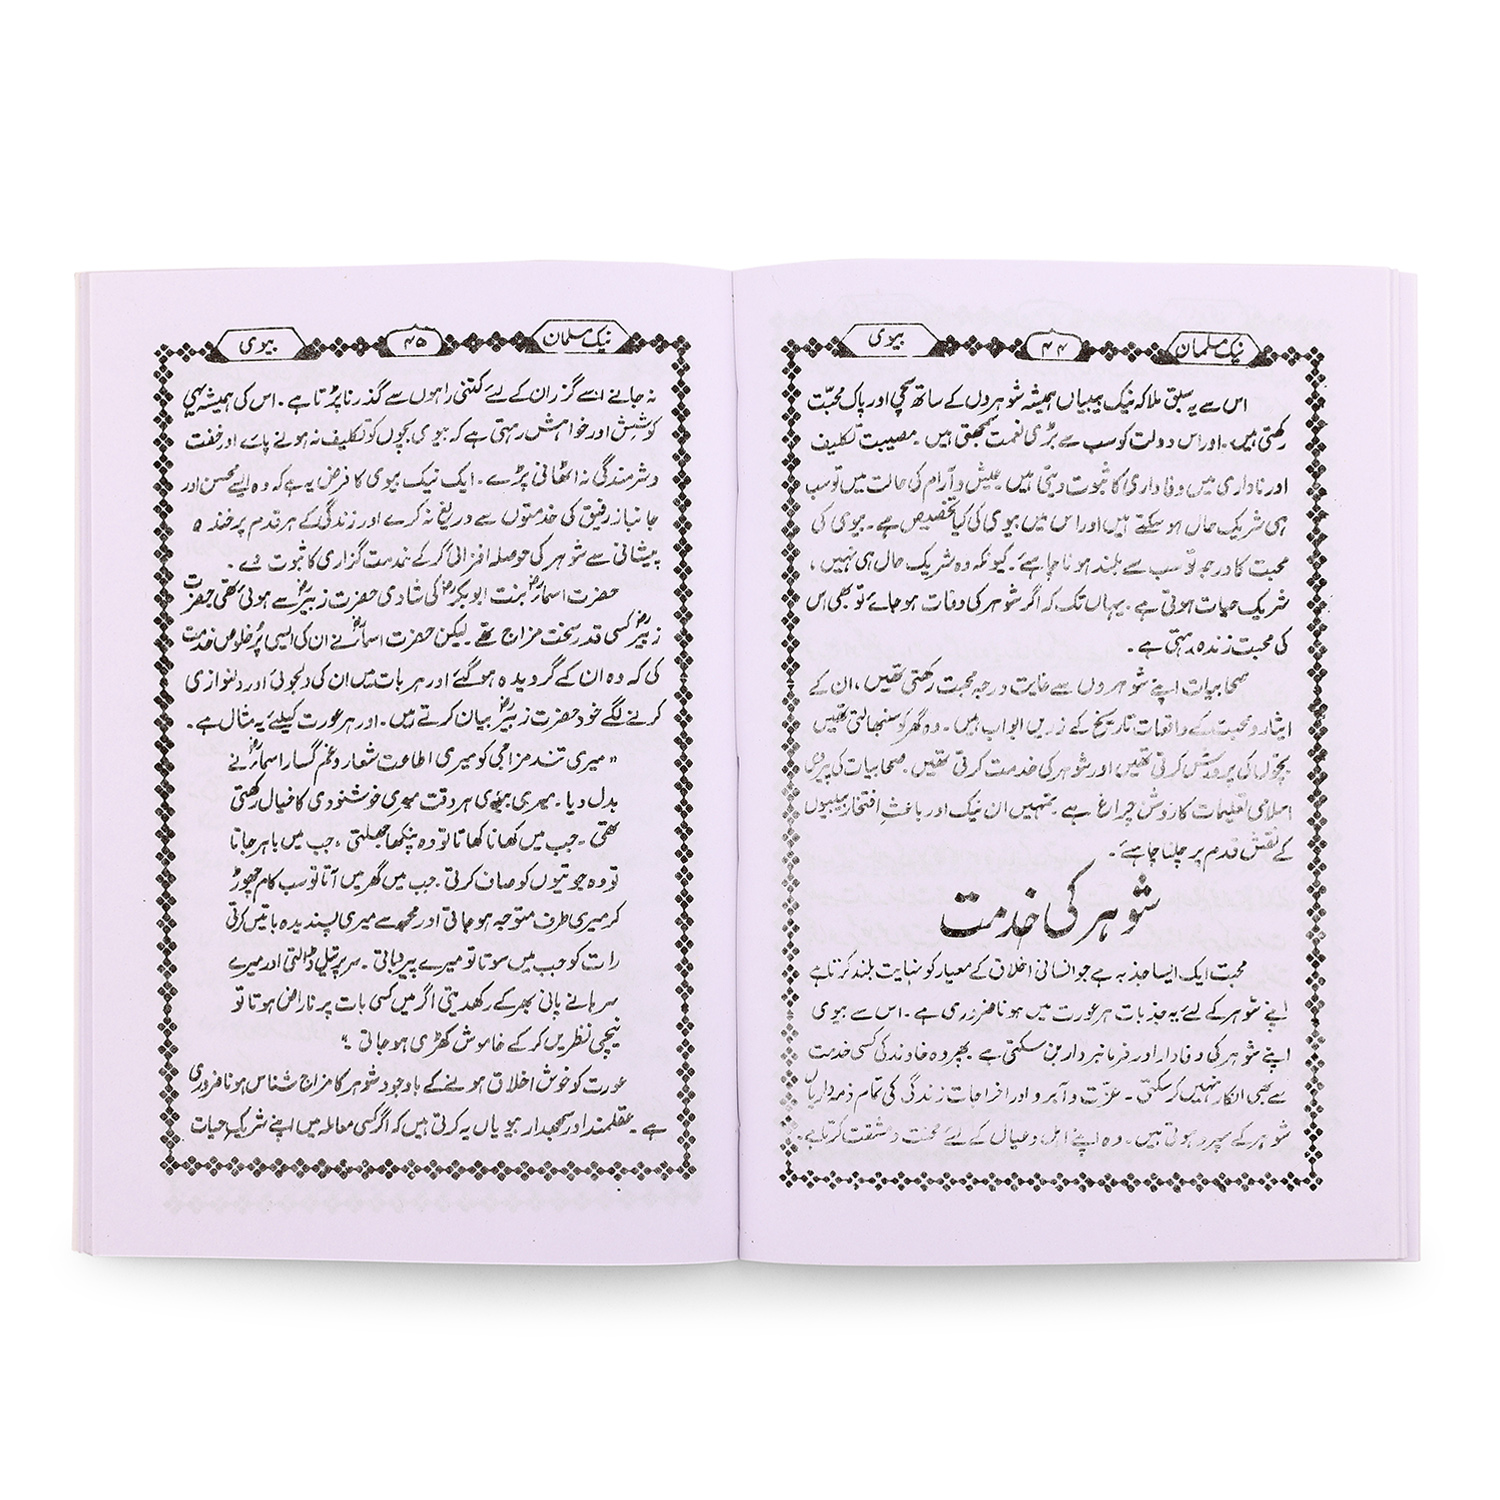 نیک مسلمان ۴۴ بیوی
اس سے یہ سبق ملا کہ نیک بیبیاں ہمیشہ شوہروں کے ساتھ سچی اور پاک محبّت
رکھتی ہیں۔ اور اس دولت کو سب سے بڑی نعمت سمجھتی ہیں۔ مصیبت تکلیف
اور ناداری میں وفاداری کا ثبوت دیتی ہیں۔ عیش و آرام کی حالت میں تو سب
ہی شریک حال ہو سکتے ہیں اور اس میں بیوی کی کیا تخصیص ہے۔ بیوی کی
محبت کا درجہ تو سب سے بلند ہونا چاہئے۔ کیونکہ وہ شریک حال ہی نہیں ،
شریک حیات ہوتی ہے۔ یہاں تک کہ اگر شوہر کی وفات ہو جائے تو بھی اس
کی محبت زندہ رہتی ہے۔
صحابیات اپنے شوہروں سے غایت درجہ محبت رکھتی تھیں ، ان کے
ایثار و محبت کے واقعات تاریخ کے زریں ابواب ہیں۔ وہ گھر کو سنبھالتی تھیں
بچّوں کی پرورش کرتی تھیں اور شوہر کی خدمت کرتی تھیں۔ صحابیات کی پیروی
اسلامی تعلیمات کا روشن چراغ ہے۔ تمہیں ان نیک اور باعثِ افتخار بیبیوں
کے نقش قدم پر چلنا چاہئے۔
شوہر کی خدمت
محبت ایک ایسا جذبہ ہے جو انسانی اخلاق کے معیار کو نہایت بلند کرتا ہے
اپنے شوہر کے لئے یہ جذبات ہر عورت میں ہونا ضروری ہے۔ اس سے بیوی
اپنے شوہر کی وفادار اور فرمانبردار بن سکتی ہے۔ پھر وہ خاوند کی کسی خدمت
سے بھی انکار نہیں کر سکتی۔ عزّت و آبرو اور اخراجات زندگی کی تمام ذمہ داریاں
شوہر کے سپرد ہوتی ہیں۔ وہ اپنے اہل و عیال کے لئے محنت و مشقت کرتا ہے
نیک مسلمان ۴۵ بیوی
نہ جانے اسے گزران کے لئے کتنی راہوں سے گذرنا پڑتا ہے۔ اس کی ہمیشہ یہی
کوشش اور خواہش رہتی ہے کہ بیوی بچوں کو تکلیف نہ ہونے پائے اور خفت
و شرمندگی نہ اٹھانی پڑے۔ ایک نیک بیوی کا فرض یہ ہے کہ وہ ایسے محسن اور
جانباز رفیق کی خدمتوں سے دریغ نہ کرے اور زندگی کے ہر قدم پر خندہ
پیشانی سے شوہر کی حوصلہ افزائی کر کے خدمت گزاری کا ثبوت دے۔
حضرت اسماءؓ بنت ابوبکرؓ کی شادی حضرت زبیرؓ سے ہوئی تھی حضرت
زبیرؓ کسی قدر سخت مزاج تھے۔ لیکن حضرت اسماءؓ نے ان کی ایسی پُر خلوص خدمت
کی کہ وہ ان کے گرویدہ ہو گئے اور ہر بات میں ان کی دلجوئی اور دلنوازی
کرنے لگے خود حضرت زبیرؓ بیان کرتے ہیں۔ اور ہر عورت کیلئے یہ مثال ہے۔
" میری تند مزاجی کو میری اطاعت شعار و غم گسار اسماءؓ نے
بدل دیا۔ میری بیوی ہر وقت میری خوشنودی کا خیال رکھتی
تھی۔ جب میں کھانا کھاتا تو وہ پنکھا جھلتی ، جب میں باہر جاتا
تو وہ جوتیوں کو صاف کرتی۔ جب میں گھر میں آتا تو سب کام چھوڑ
کر میری طرف متوجہ ہو جاتی اور مجھ سے میری پسندیدہ باتیں کرتی
رات کو جب میں سوتا تو میرے پیر دباتی۔ سر پر تیل ڈالتی اور میرے
سرہانے پانی بھر کے رکھ دیتی اگر میں کسی بات پر ناراض ہوتا تو
نیچی نظریں کر کے خاموش کھڑی ہو جاتی۔"
عورت کو خوش اخلاق ہونے کے باوجود شوہر کا مزاج شناس ہونا ضروری
ہے۔ عقلمند اور سمجھدار بیویاں یہ کرتی ہیں کہ اگر کسی معاملہ میں اپنے شریکِ حیات